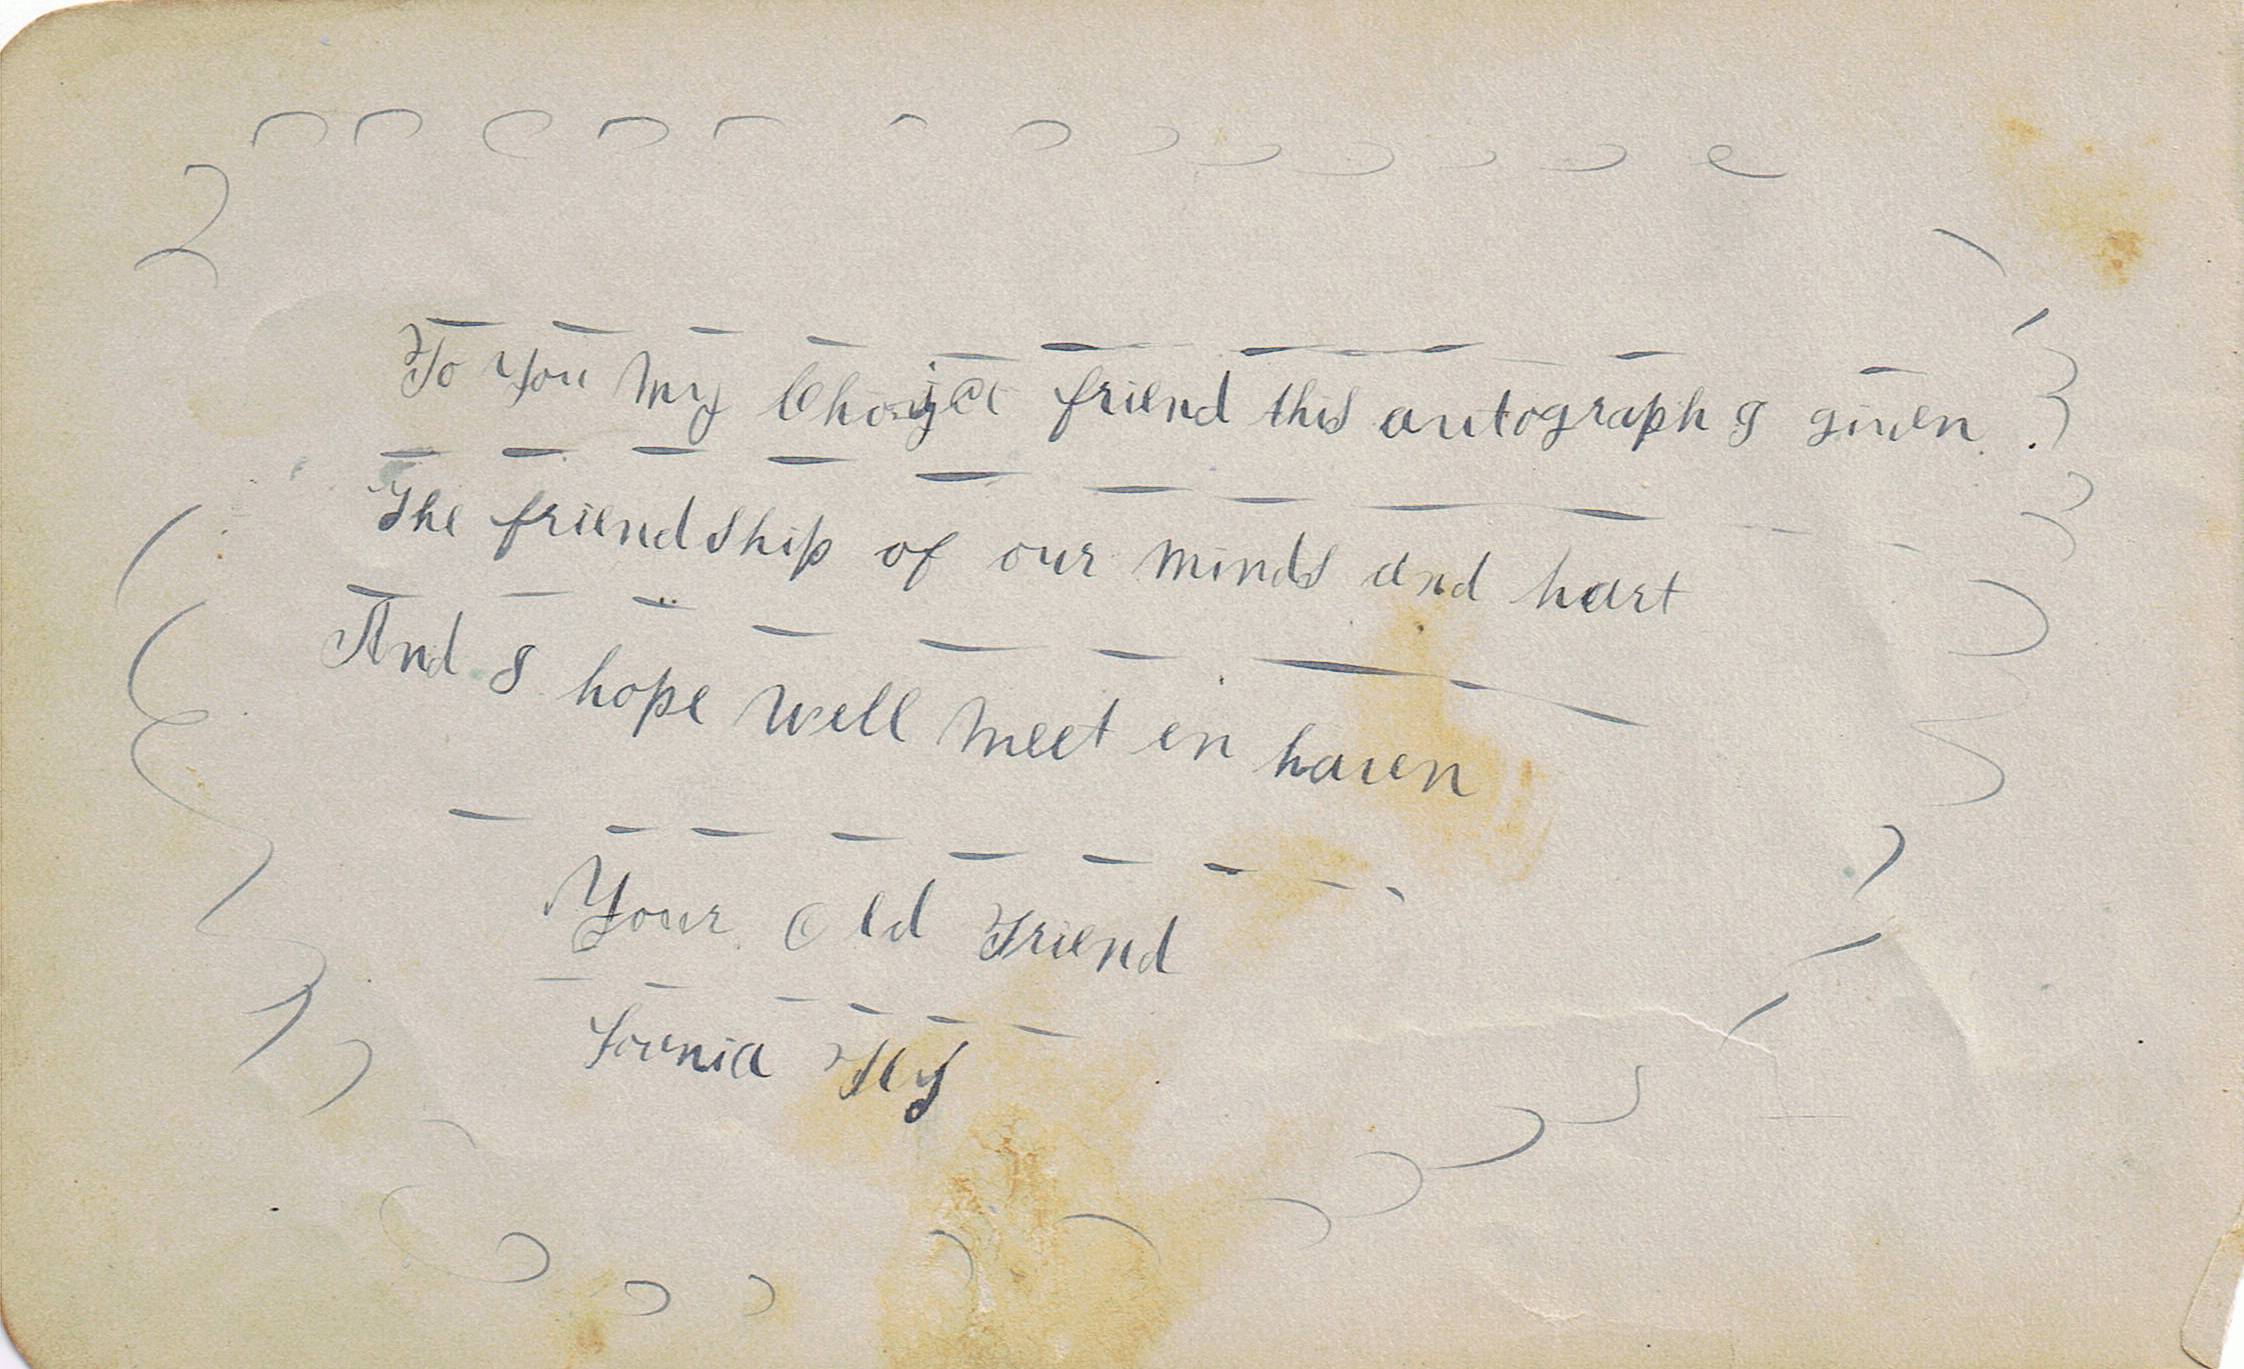 To You My friend this autograph I given.
The friendship of our minds and hart
And I hope well meet en haven
Your Old Friend